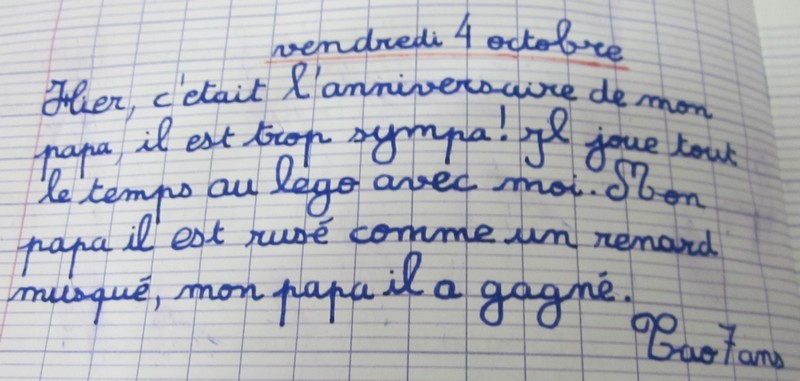 vendredi 4 octobre
Hier, c'était l'anniversaire de mon
papa, il est trop sympa! Il joue tout
le temps au lego avec moi. Mon
papa il est rusé comme un renard
musqué, mon papa il a gagné.
Tao 7 ans